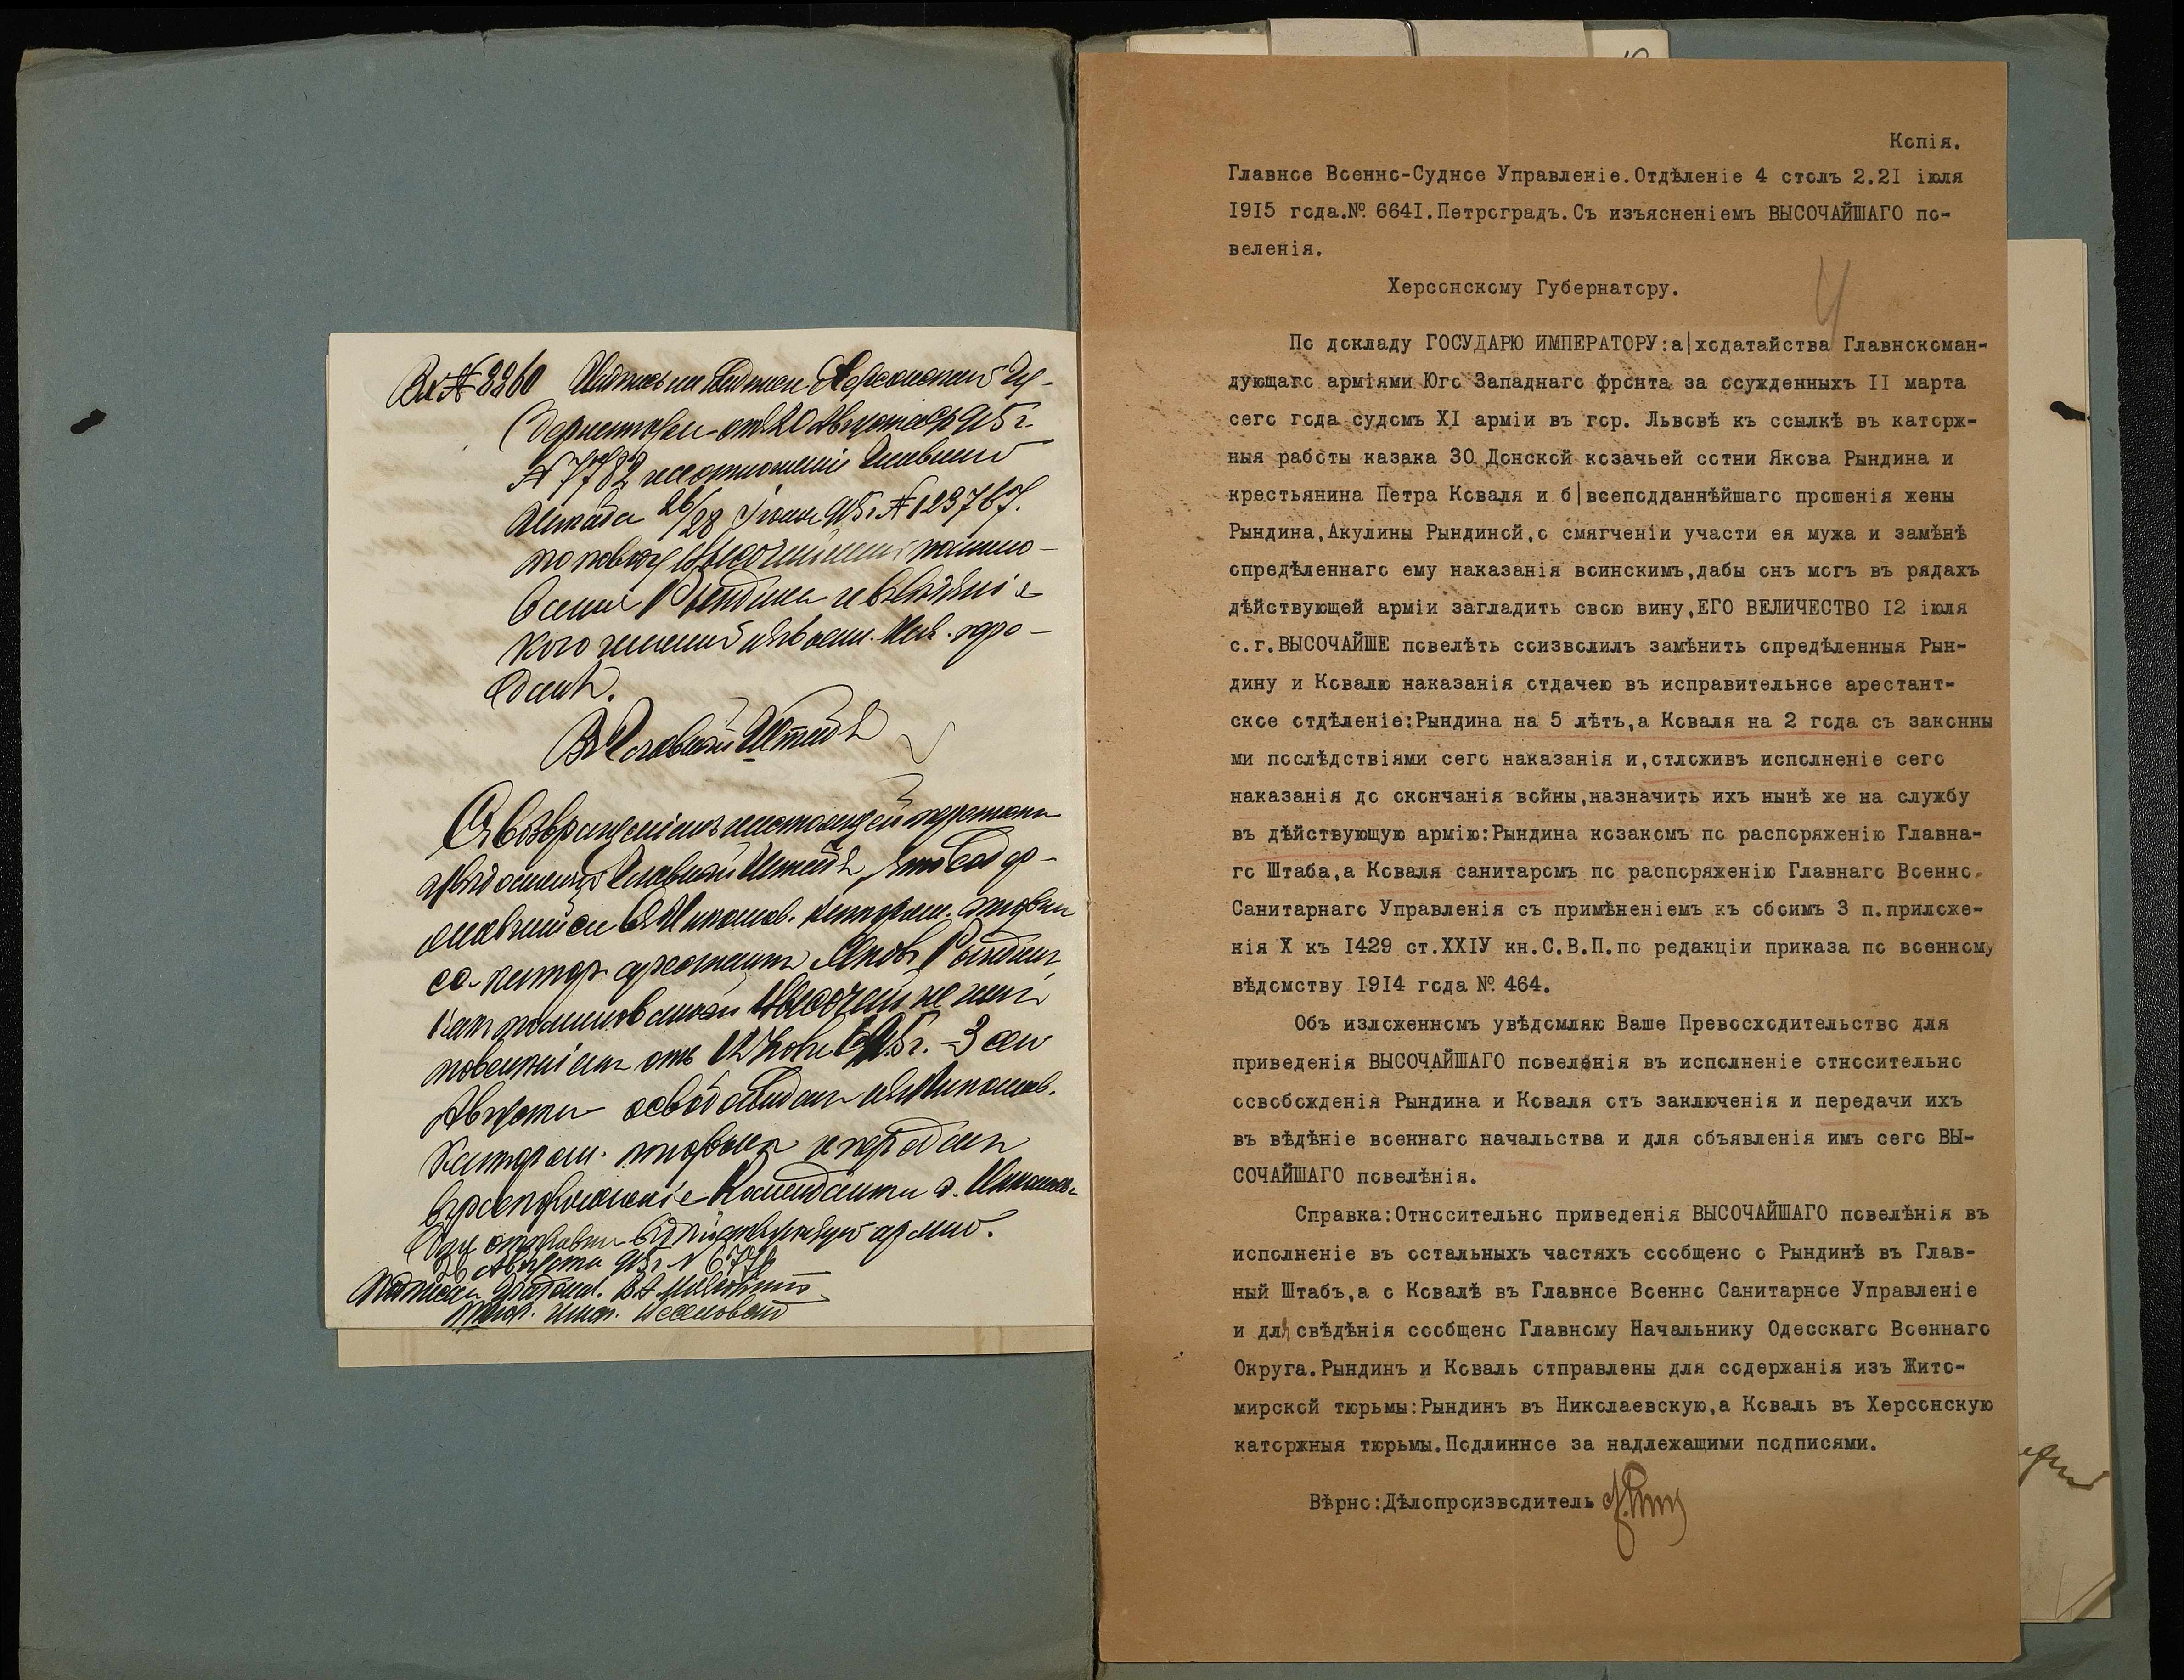 Вх № 8860 Надпись на надписи Херсонскаго Гу-
бернатора от 20 Августа 1915 г.
№ 7782 на отношеніе Главнаго
Штаба 26/28 1915 г. № 123767.
по поводу Высочайшаго помило-
ванія Рындина
Въ Главный Штабъ
Съ возвращеніемъ настоящей переписки
Главный Штабъ, что содер-
жавшійся въ Николаев. каторжн. тюрьмѣ
арестантъ Яковъ Рындинъ,
Высочайшимъ
повелѣніемъ отъ 12 1915 г. 3-го
Августа освобожденъ изъ Николаев.
каторжн. тюрьмы и переданъ
въ распоряженіе Коменданта г. Николаева
для отправки въ дѣйствующую армію.
26 Августа 1915 г. №
Подписали
Копія.
Главное Военно-Судное Управленіе.Отдѣленіе 4 столъ 2.2I іюля
I9I5 года.№ 664I.Петроградъ.Съ изъясненіемъ ВЫСОЧАЙШАГО по-
веленія.
Херсонскому Губернатору.
4
По докладу ГОСУДАРЮ ИМПЕРАТОРУ:а|ходатайства Главнокоман-
дующаго арміями Юго Западнаго фронта за осужденныхъ II марта
сего года судомъ XI арміи въ гор. Львовѣ къ ссылкѣ въ каторж-
ныя работы казака 30 Донской козачьей сотни Якова Рындина и
крестьянина Петра Коваля и б|всеподданнѣйшаго прошенія жены
Рындина,Акулины Рындиной,о смягченіи участи ея мужа и замѣнѣ
опредѣленнаго ему наказанія воинскимъ,дабы онъ могъ въ рядахъ
дѣйствующей арміи загладить свою вину,ЕГО ВЕЛИЧЕСТВО I2 іюля
с.г.ВЫСОЧАЙШЕ повелѣть соизволилъ замѣнить опредѣленныя Рын-
дину и Ковалю наказанія отдачею въ исправительное арестант-
ское отдѣленіе:Рындина на 5 лѣтъ,а Коваля на 2 года съ законны
ми послѣдствіями сего наказанія и,отложивъ исполненіе сего
наказанія до окончанія войны,назначить ихъ нынѣ же на службу
въ дѣйствующую армію:Рындина козакомъ по распоряженію Главна-
го Штаба,а Коваля санитаромъ по распоряженію Главнаго Военно-
Санитарнаго Управленія съ примѣненіемъ къ обоимъ 3 п.приложе-
нія X къ I429 ст.XXIУ кн.С.В.П.по редакціи приказа по военному
вѣдомству I9I4 года № 464.
Объ изложенномъ увѣдомляю Ваше Превосходительство для
приведенія ВЫСОЧАЙШАГО повелѣнія въ исполненіе относительно
освобожденія Рындина и Коваля отъ заключенія и передачи ихъ
въ вѣдѣніе военнаго начальства и для объявленія имъ сего ВЫ-
СОЧАЙШАГО повелѣнія.
Справка:Относительно приведенія ВЫСОЧАЙШАГО повелѣнія въ
исполненіе въ остальныхъ частяхъ сообщено о Рындинѣ въ Глав-
ный Штабъ,а о Ковалѣ въ Главное Военно Санитарное Управленіе
и для свѣдѣнія сообщено Главному Начальнику Одесскаго Военнаго
Округа.Рындинъ и Коваль отправлены для содержанія изъ Жито-
мирской тюрьмы:Рындинъ въ Николаевскую,а Коваль въ Херсонскую
каторжныя тюрьмы.Подлинное за надлежащими подписями.
Вѣрно:Дѣлопроизводитель